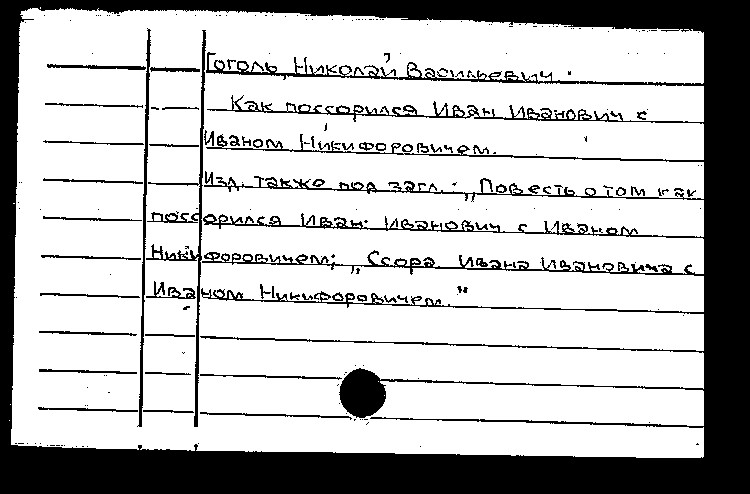 Гоголь, Николай Васильевич.
Как поссорился Иван Иванович с
Иваном Никифоровичем.
Изд. также под загл.: „Повесть о том как
поссорился Иван Иванович с Иваном
Никифоровичем; „Ссора Ивана Ивановича с
Иваном Никифоровичем."